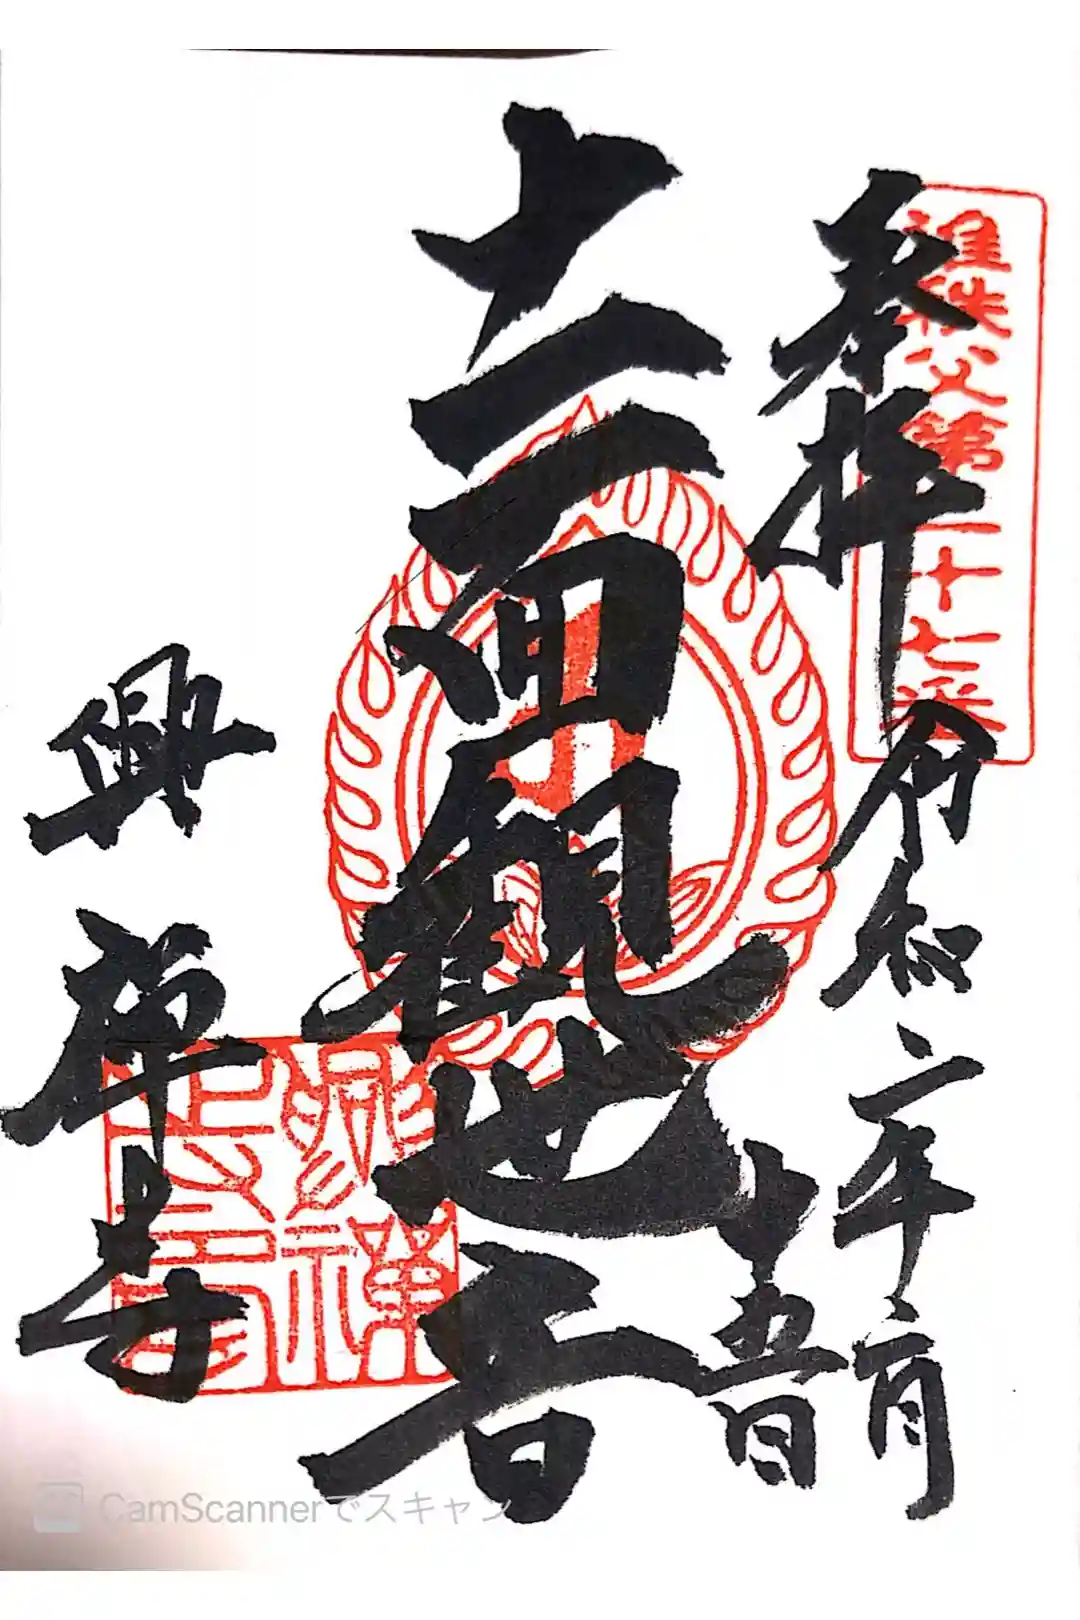 奉拝
准秩父第二十七番
令和二年二月
十五日
十一面観世音
興禅寺
CamScannerでスキャン